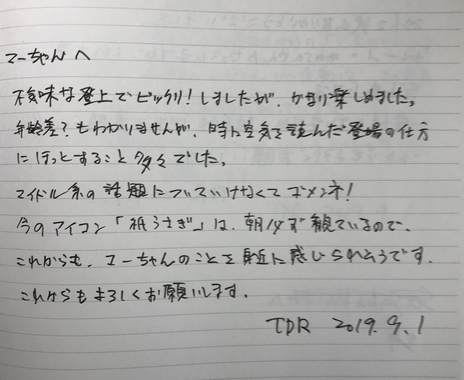 マーちゃんへ
不気味な登上でビックリ!しましたが、かなり楽しめました。
年齢差?もわかりませんが、時に空気を読んだ登場の仕方
にほっとすること多々でした。
アイドル系の話題についていけなくてゴメンネ!
今のアイコン「紙うさぎ」は、朝必ず観ているので、
これからも、マーちゃんのことを身近に感じられそうです。
これからもよろしくお願いします。
TDR 2019.9.1